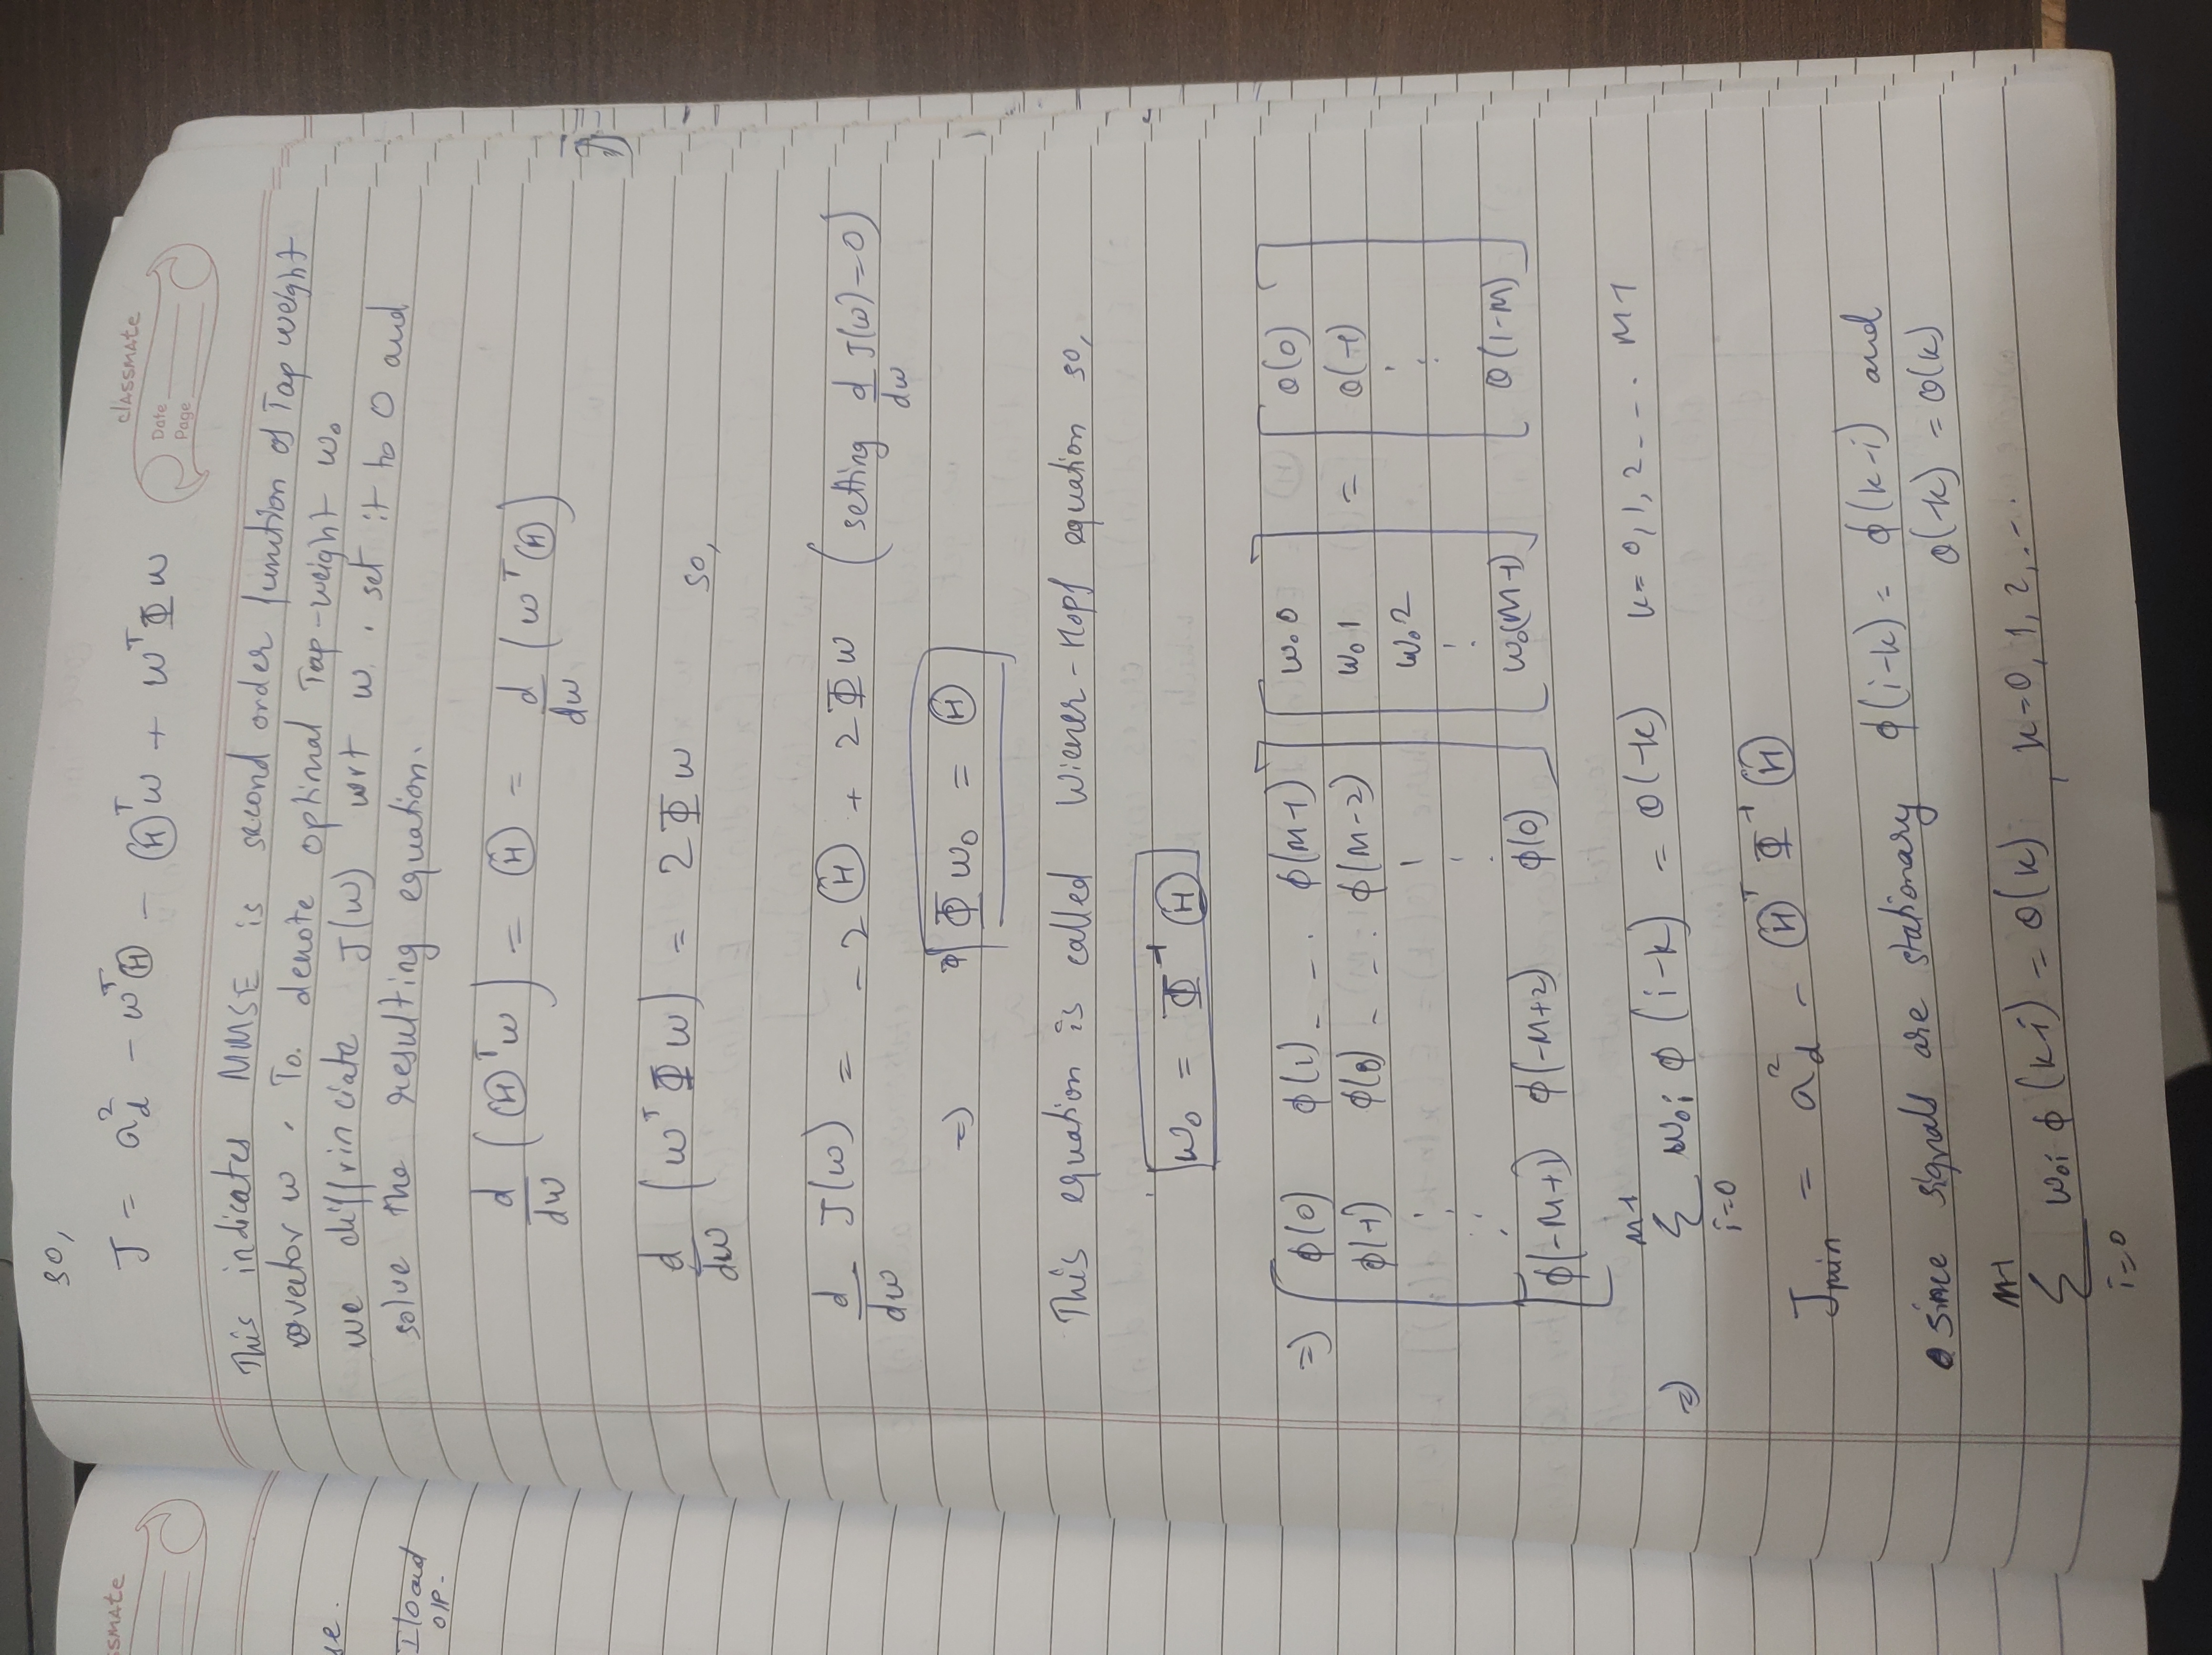 ssmate
se.
I/O and
O/P-
classmate
Date
Page
so,
J = a_d^2 - w^T Ⓗ - Ⓗ^T w + w^T Φ w
This indicates MMSE is second order function of Tap weight
vector w. To. denote optimal Tap-weight w_0
we diffrinciate J(w) wrt w. set it to 0 and
solve the resulting equation.
d/dw (Ⓗ^T w) = Ⓗ = d/dw (w^T Ⓗ)
d/dw (w^T Φ w) = 2 Φ w so,
d/dw J(w) = -2 Ⓗ + 2 Φ w (setting d/dw J(w) = 0)
=) Φ w_0 = Ⓗ
This equation is called Wiener-Hopf equation so,
w_0 = Φ^-1 Ⓗ
=) [ φ(0) φ(1) - - . φ(M-1) ] [ w_0 0 ] [ θ(0) ]
φ(-1) φ(0) - - . φ(M-2) w_0 1 = θ(-1)
⋮ ⋮ w_0 2 ⋮
φ(-M+1) φ(-M+2) φ(0) w_0(M-1) θ(1-M)
=) M-1 Σ i=0 w_0i φ(i-k) = θ(-k) k = 0, 1, 2 - - . M-1
J_min = a_d^2 - Ⓗ^T Φ^-1 Ⓗ
since signals are stationary φ(i-k) = φ(k-i) and
θ(-k) = θ(k)
M-1 Σ i=0 w_0i φ(k-i) = θ(k) , k=0, 1, 2, . - .